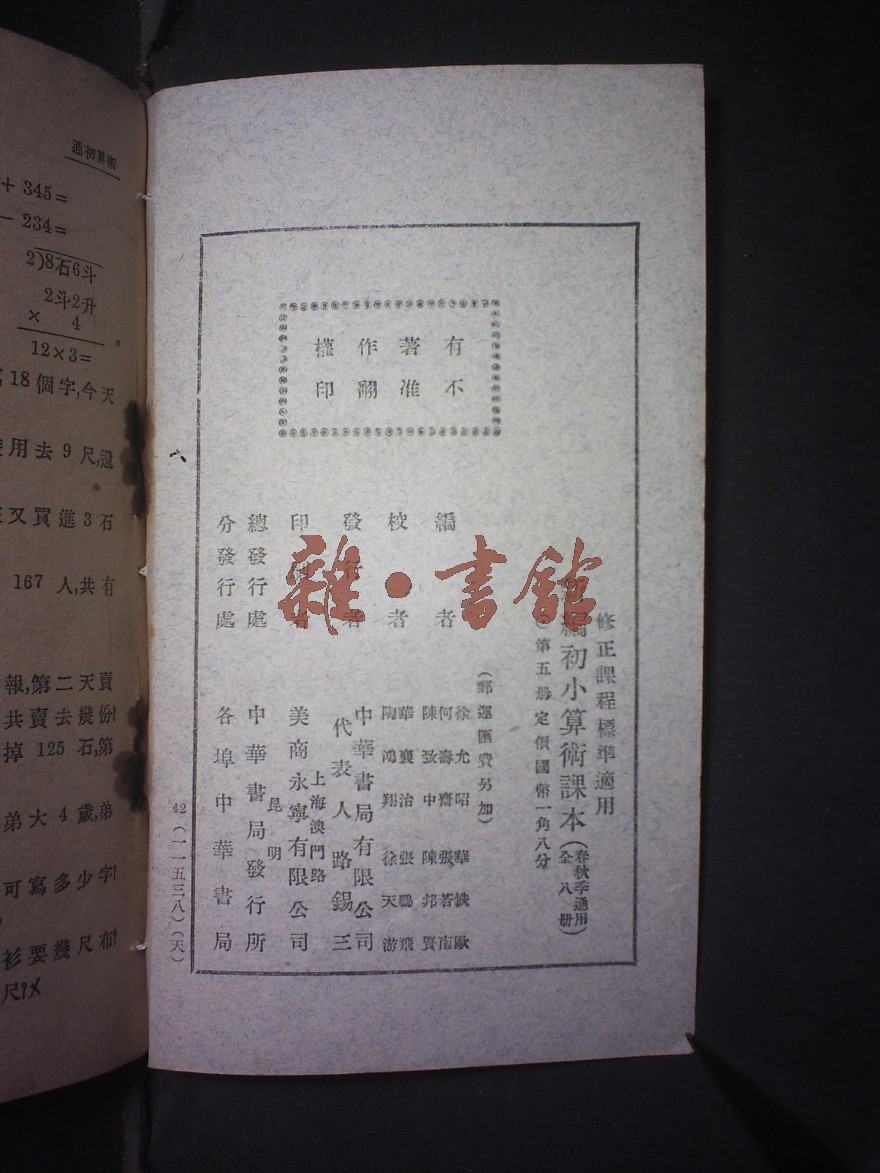 有著作權
不准翻印
修正課程標準適用
編初小算術課本(春秋季通用 全八册)
第五册定價國幣一角八分
(郵運匯費另加)
編者
徐允昭
何壽齋 張若南
陳致中 陳邦賢
校者
華襄治 張鵬飛
陶鴻翔 徐天游
發行者
中華書局有限公司
代表人路錫三
印者
上海澳門路
美商永寧有限公司
總發行處
昆明
中華書局發行所
分發行處
各埠中華書局
42(一一五三八)(天)
雜·書館
通初算術
+ 345=
− 234=
2)8石6斗
2斗2升
× 4
12×3=
18個字,今天
用去9尺,還
又買進3石
167人,共有
報,第二天賣
共賣去幾份?
掉125石,第
弟大4歲,弟
可寫多少字?
衫要幾尺布?
尺?